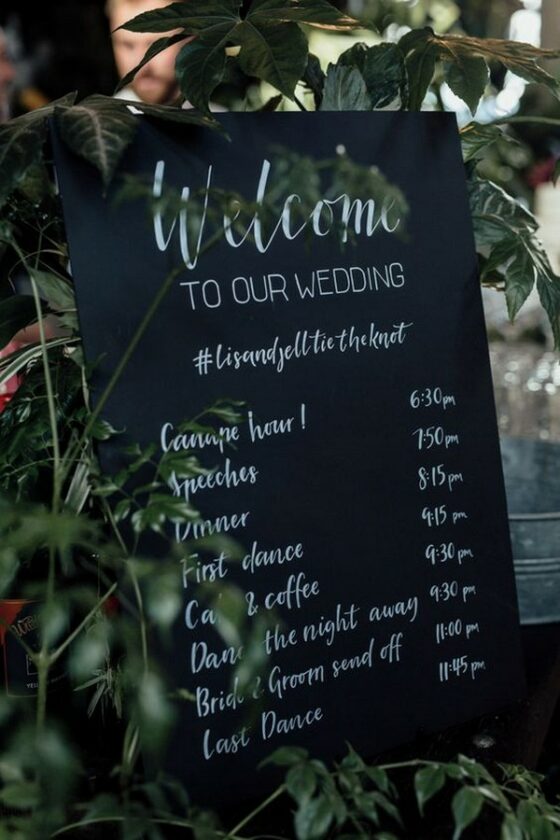 Welcome
TO OUR WEDDING
#lisandjelltietheknot
Canape hour! 6:30pm
Speeches 7:50pm
Dinner 8:15pm
First dance 9:15pm
Cake & coffee 9:30pm
Dance the night away 9:30pm
Bride & Groom send off 11:00pm
Last Dance 11:45pm